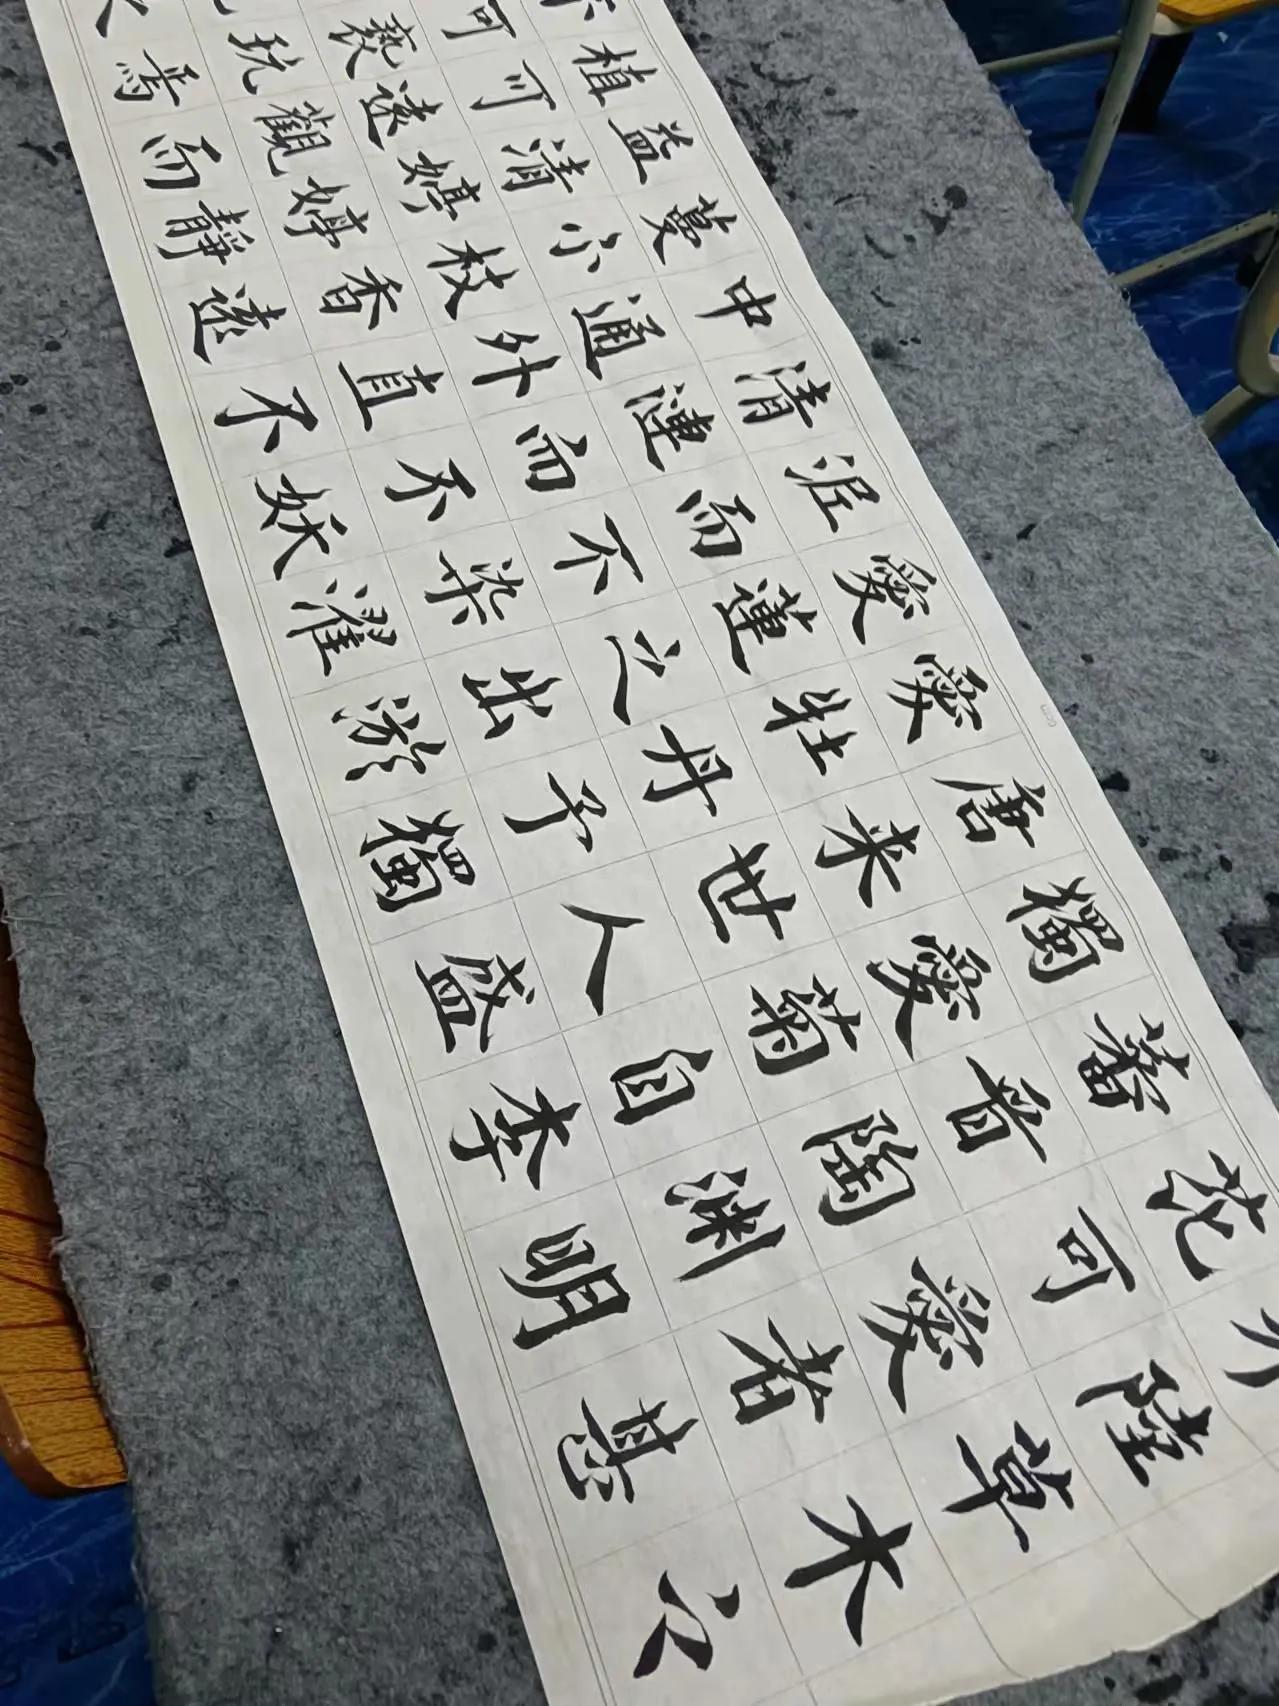 水陸草木之
花可愛者甚
蕃晉陶淵明
獨愛菊自李
唐来世人盛
愛牡丹予獨
愛蓮之出淤
泥而不染濯
清漣而不妖
中通外直不
蔓不枝香遠
益清婷婷靜
植可遠觀而
不可褻玩焉